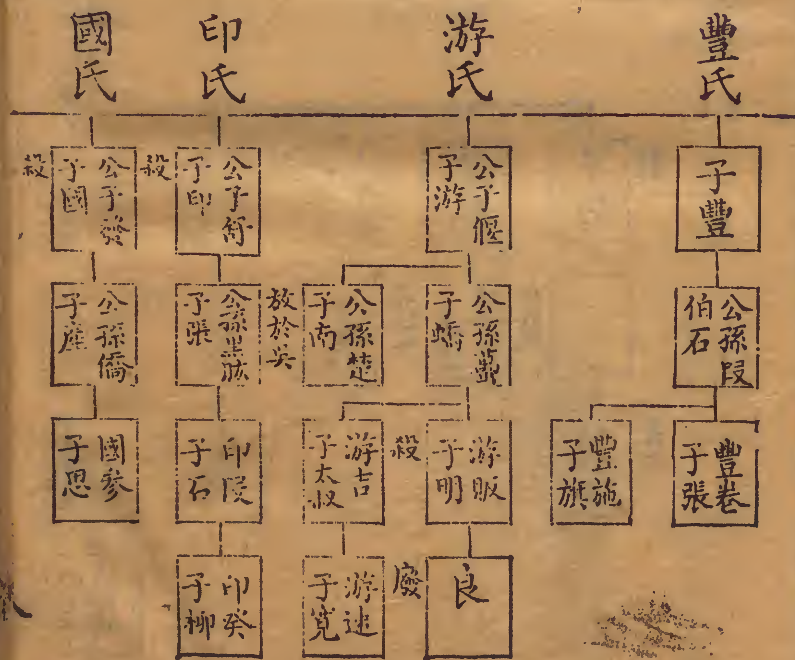 豐氏
子豐
公孫段
伯石
豐卷
子張
豐施
子旗
游氏
公子偃
子游
公孫蠆
子蟜
公孫楚
子南
放於吳
游眅
子明
殺
游吉
子太叔
良
廢
游速
子寬
印氏
公子舒
子印
殺
公孫黑肱
子張
印段
子石
印癸
子柳
國氏
公子發
子國
殺
公孫僑
子產
國參
子思